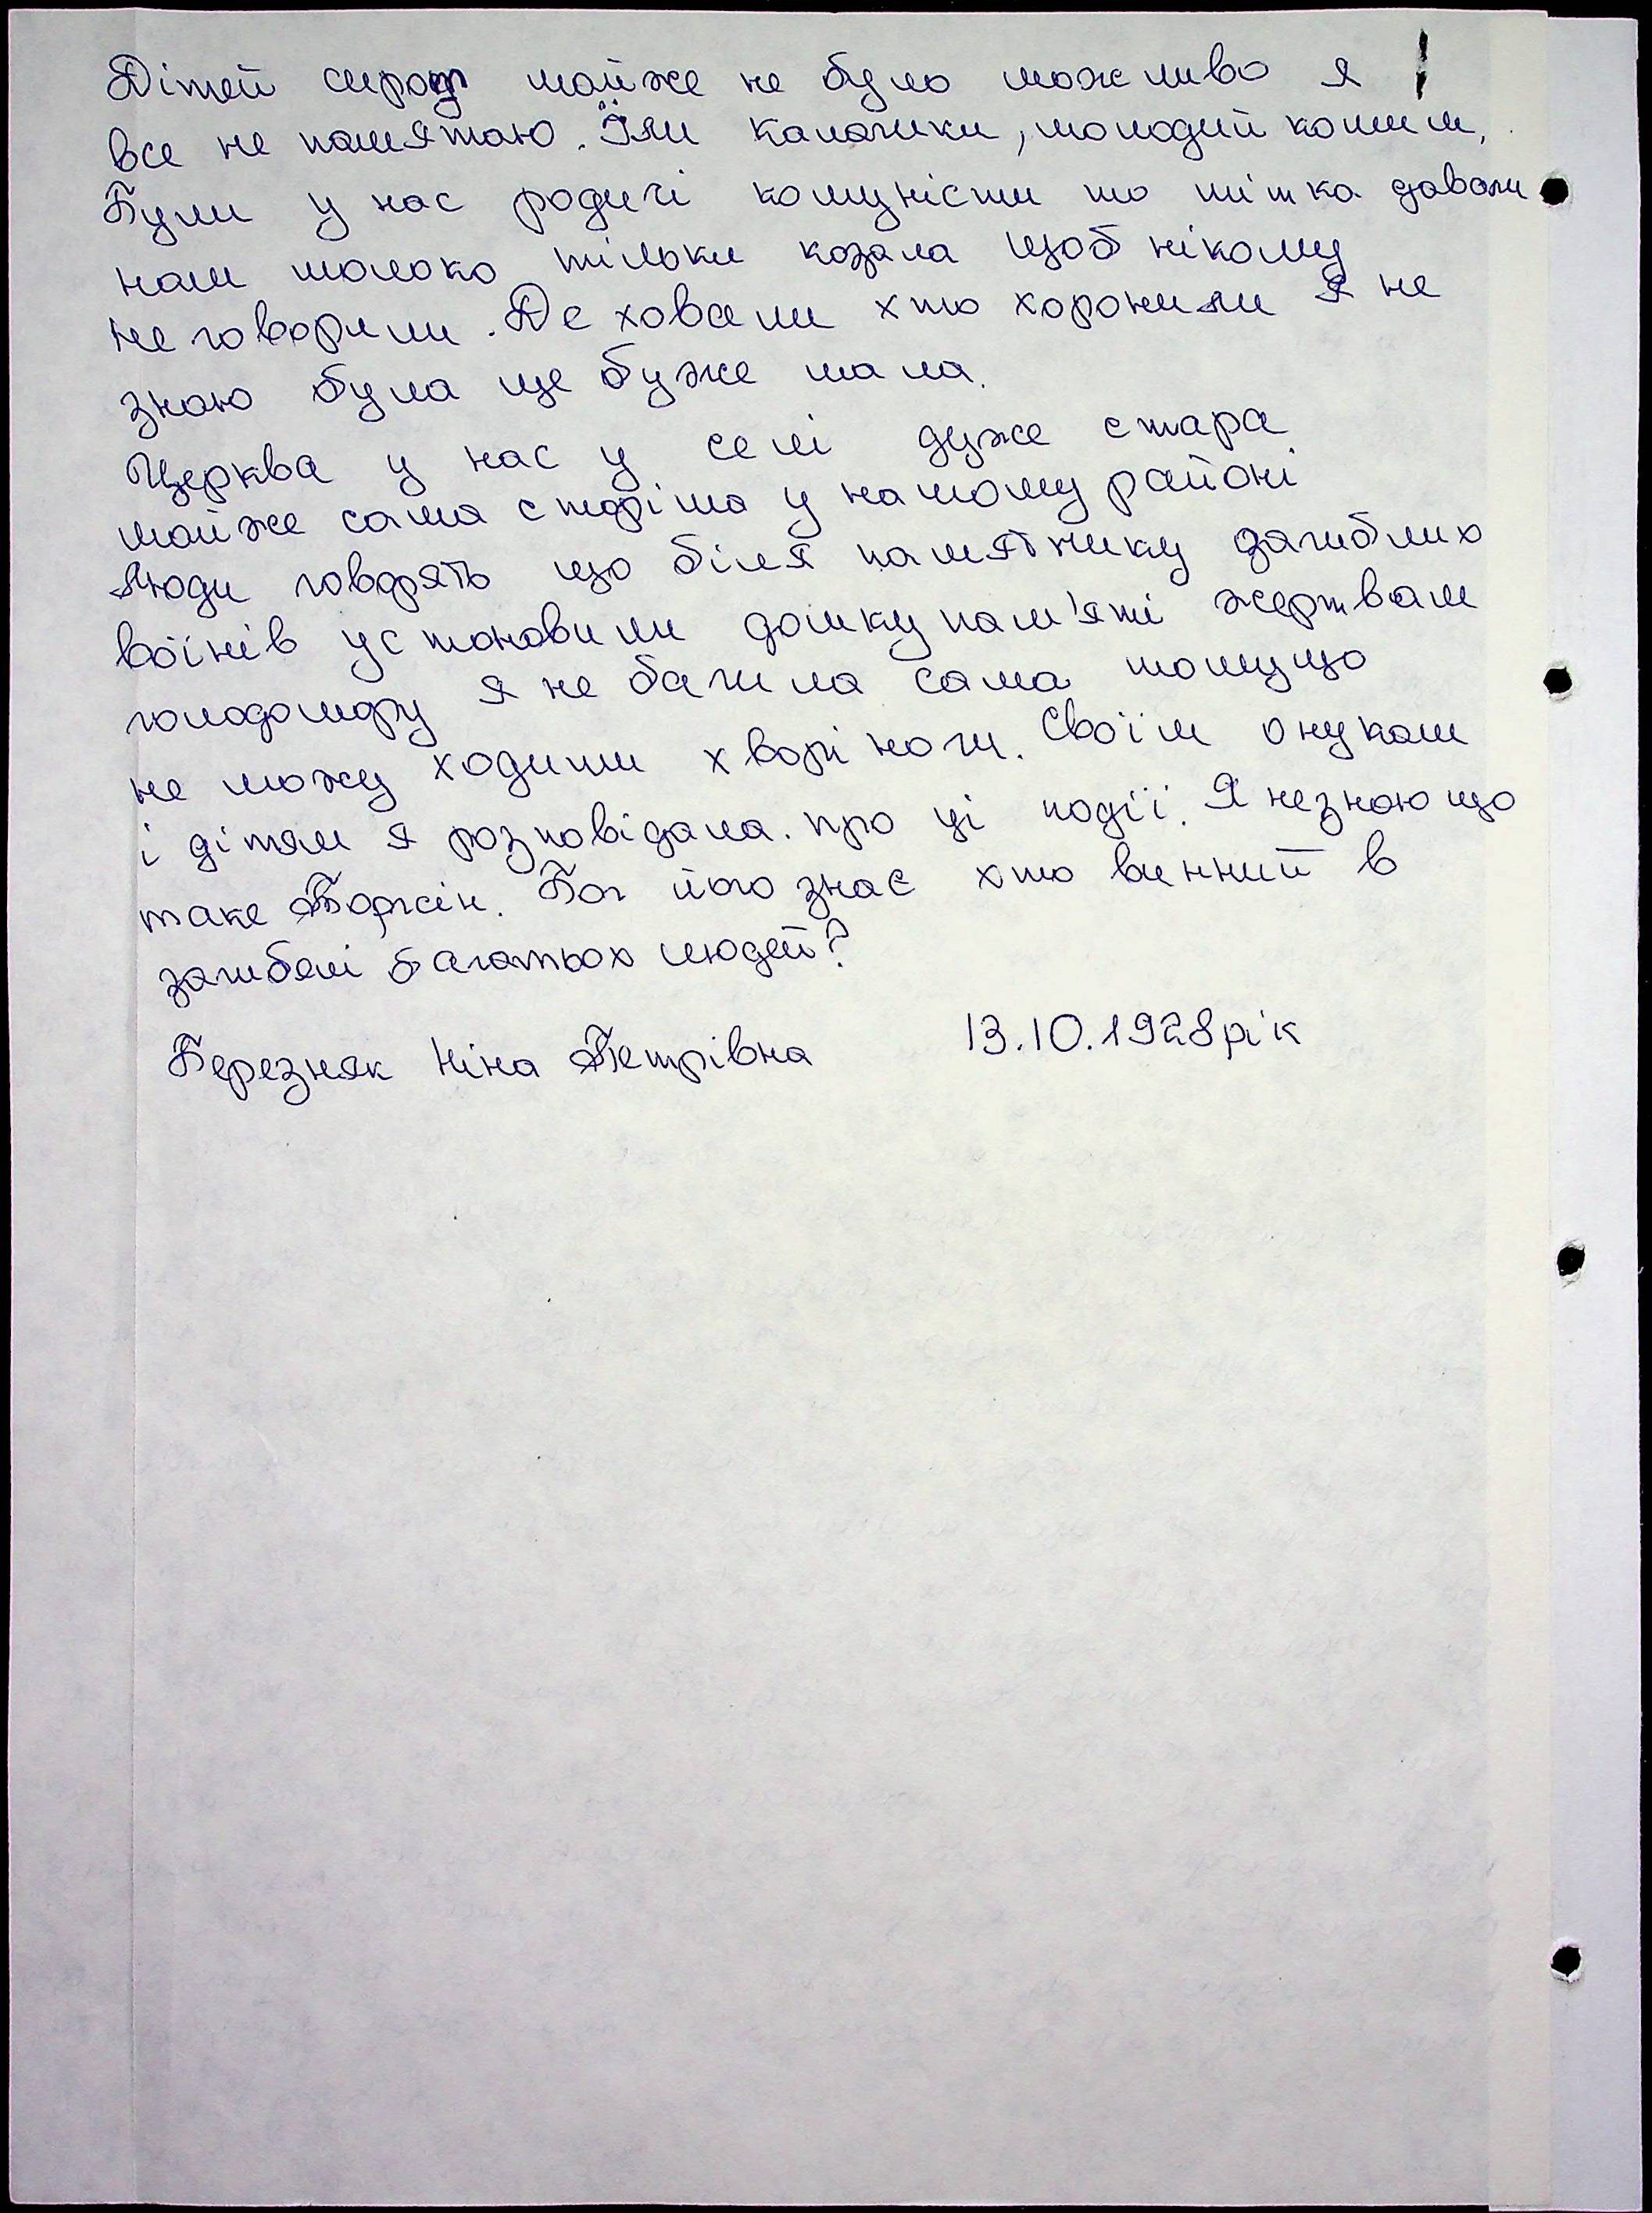 Дітей сирот майже не було можливо я
все не памятаю. Їли калачики, молодий комиш,
Були у нас родичі комуністи то тітка давали
нам молоко тільки казала щоб нікому
не говорили. Де ховали хто хоронили я не
знаю була ще дуже мала.
Церква у нас у селі дуже стара
майже сама старіша у нашому районі
Люди говорять що біля памятнику загиблих
воїнів установили дошку пам'яті жертвам
голодомору я не бачила сама тому що
не можу ходити хворі ноги. Своїм онукам
і дітям я розповідала. про ці події. Я незнаю що
таке Торгсін. Бог його знає хто винний в
загибелі багатьох людей?
Березняк Ніна Петрівна 13.10.1928рік